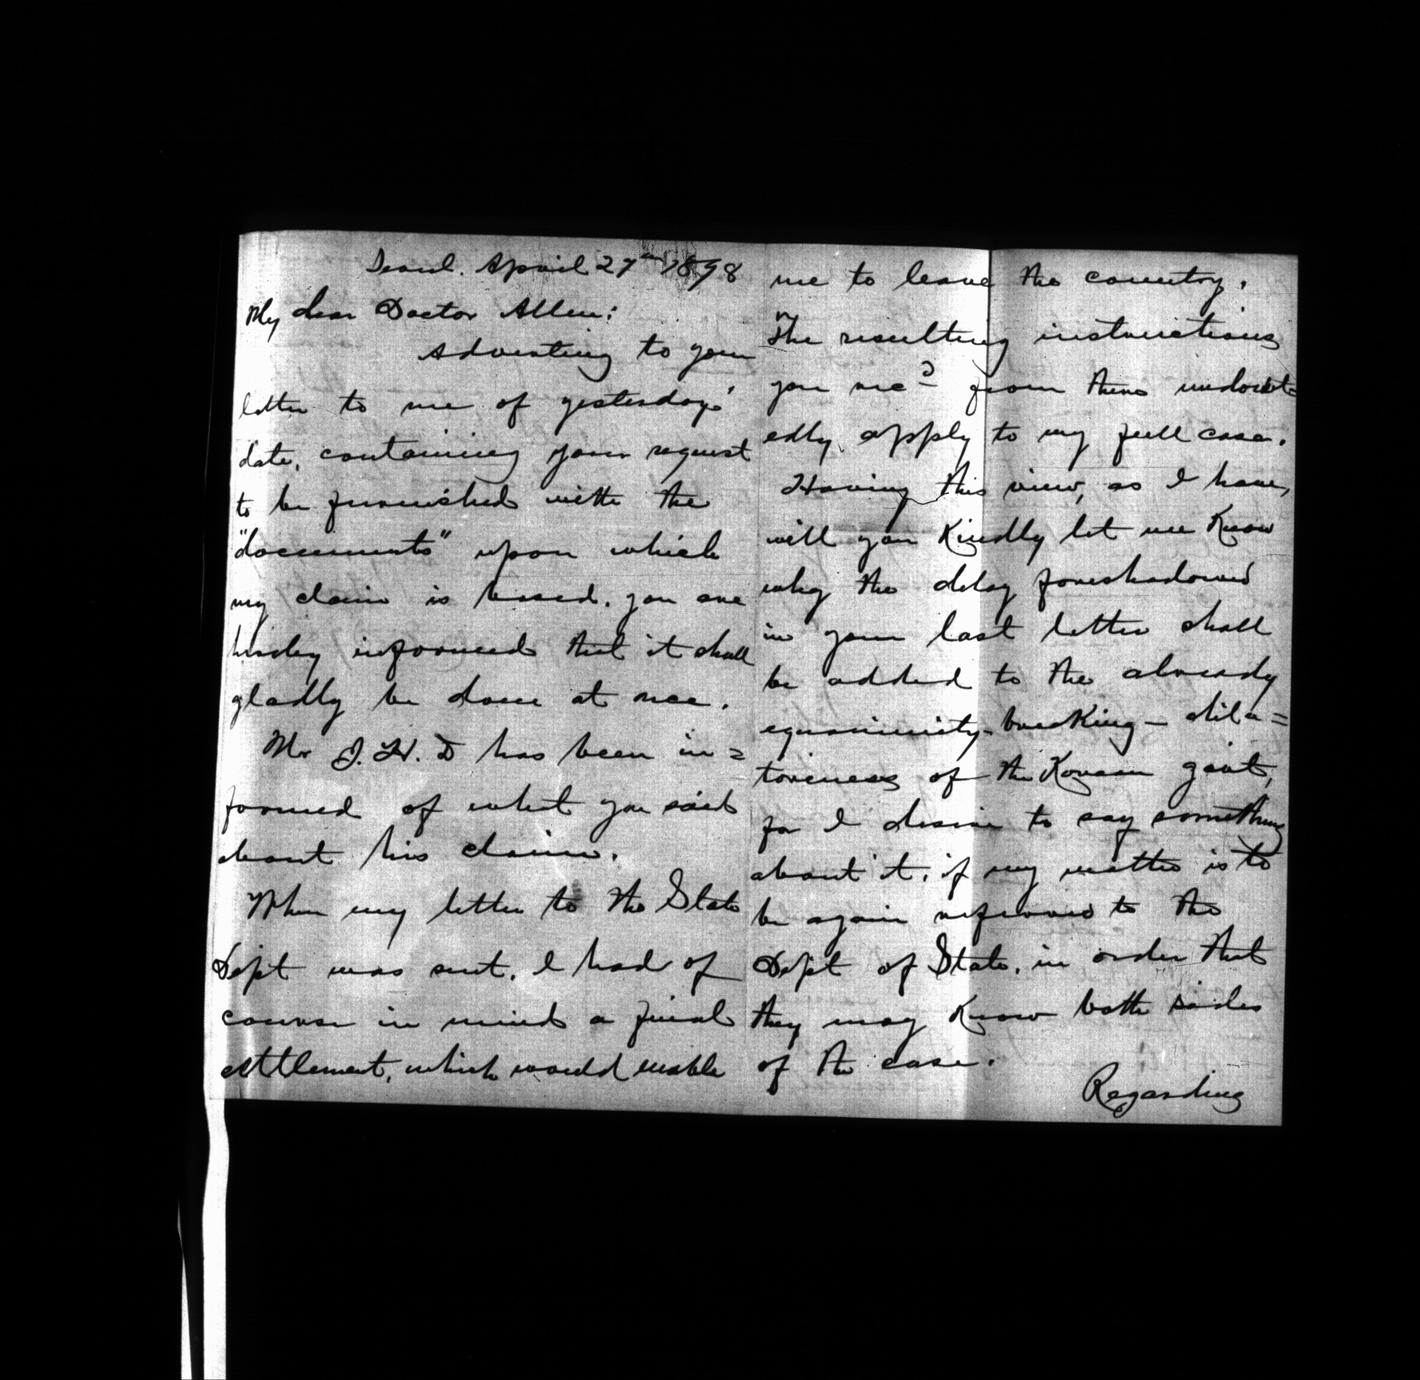 Seoul. April 27th 1898
My dear Doctor Allen:
Adverting to your
letter to me of yesterdays'
date, containing your request
to be furnished with the
"documents" upon which
my claim is based. you are
hereby informed that it shall
gladly be done at once.
Mr J. H. D has been in=
formed of what you said
about his claim.
When my letter to the State
Dept was sent. I had of
course in mind a final
settlement, which would enable
me to leave the country.
The resulting instructions
you recd from there undoubt=
edly apply to my full case.
Having this view, as I have,
will you Kindly let me Know
why the delay foreshadowed
in your last letter shall
be added to the already
equanimity-breaking- dila=
toriness of the Korean govt,
for I desire to say something
about it, if my matter is to
be again referred to the
Dept of State. in order that
they may Know both sides
of the case.
Regarding